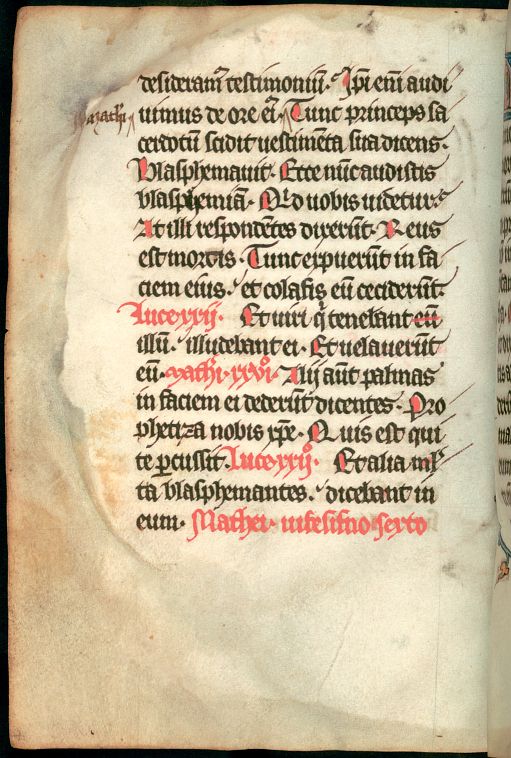 desideram᷒ testimoniū. Ip̄i em̄ audi
uimus de ore ei᷒. Tunc princeps sa
Mathei
cerdotū scidit uestimēta sua dicens.
Blasphemauit. Ecce nūc audistis
blasphemiā. Qd̓ uobis uidetur.
At illi respondētes dixerūt. Reus
est mortis. Tunc expuerūt in fa
ciem eius. et colafis eū ceciderūt.
Luce. xxij. Et uiri q̇ tenebant eū
illū. illudebant ei. Et uelauerūt
eū. Mathi. xxviͦ. Alij aūt palmas
in faciem ei dederūt dicentes. Pro
phetiza nobis xp̄e. Quis est qui
te ꝑcussit. Luce. xxijͦ. Et alia ml̓
ta blasphemantes. dicebant in
eum. Mathei. uicesimo sexto